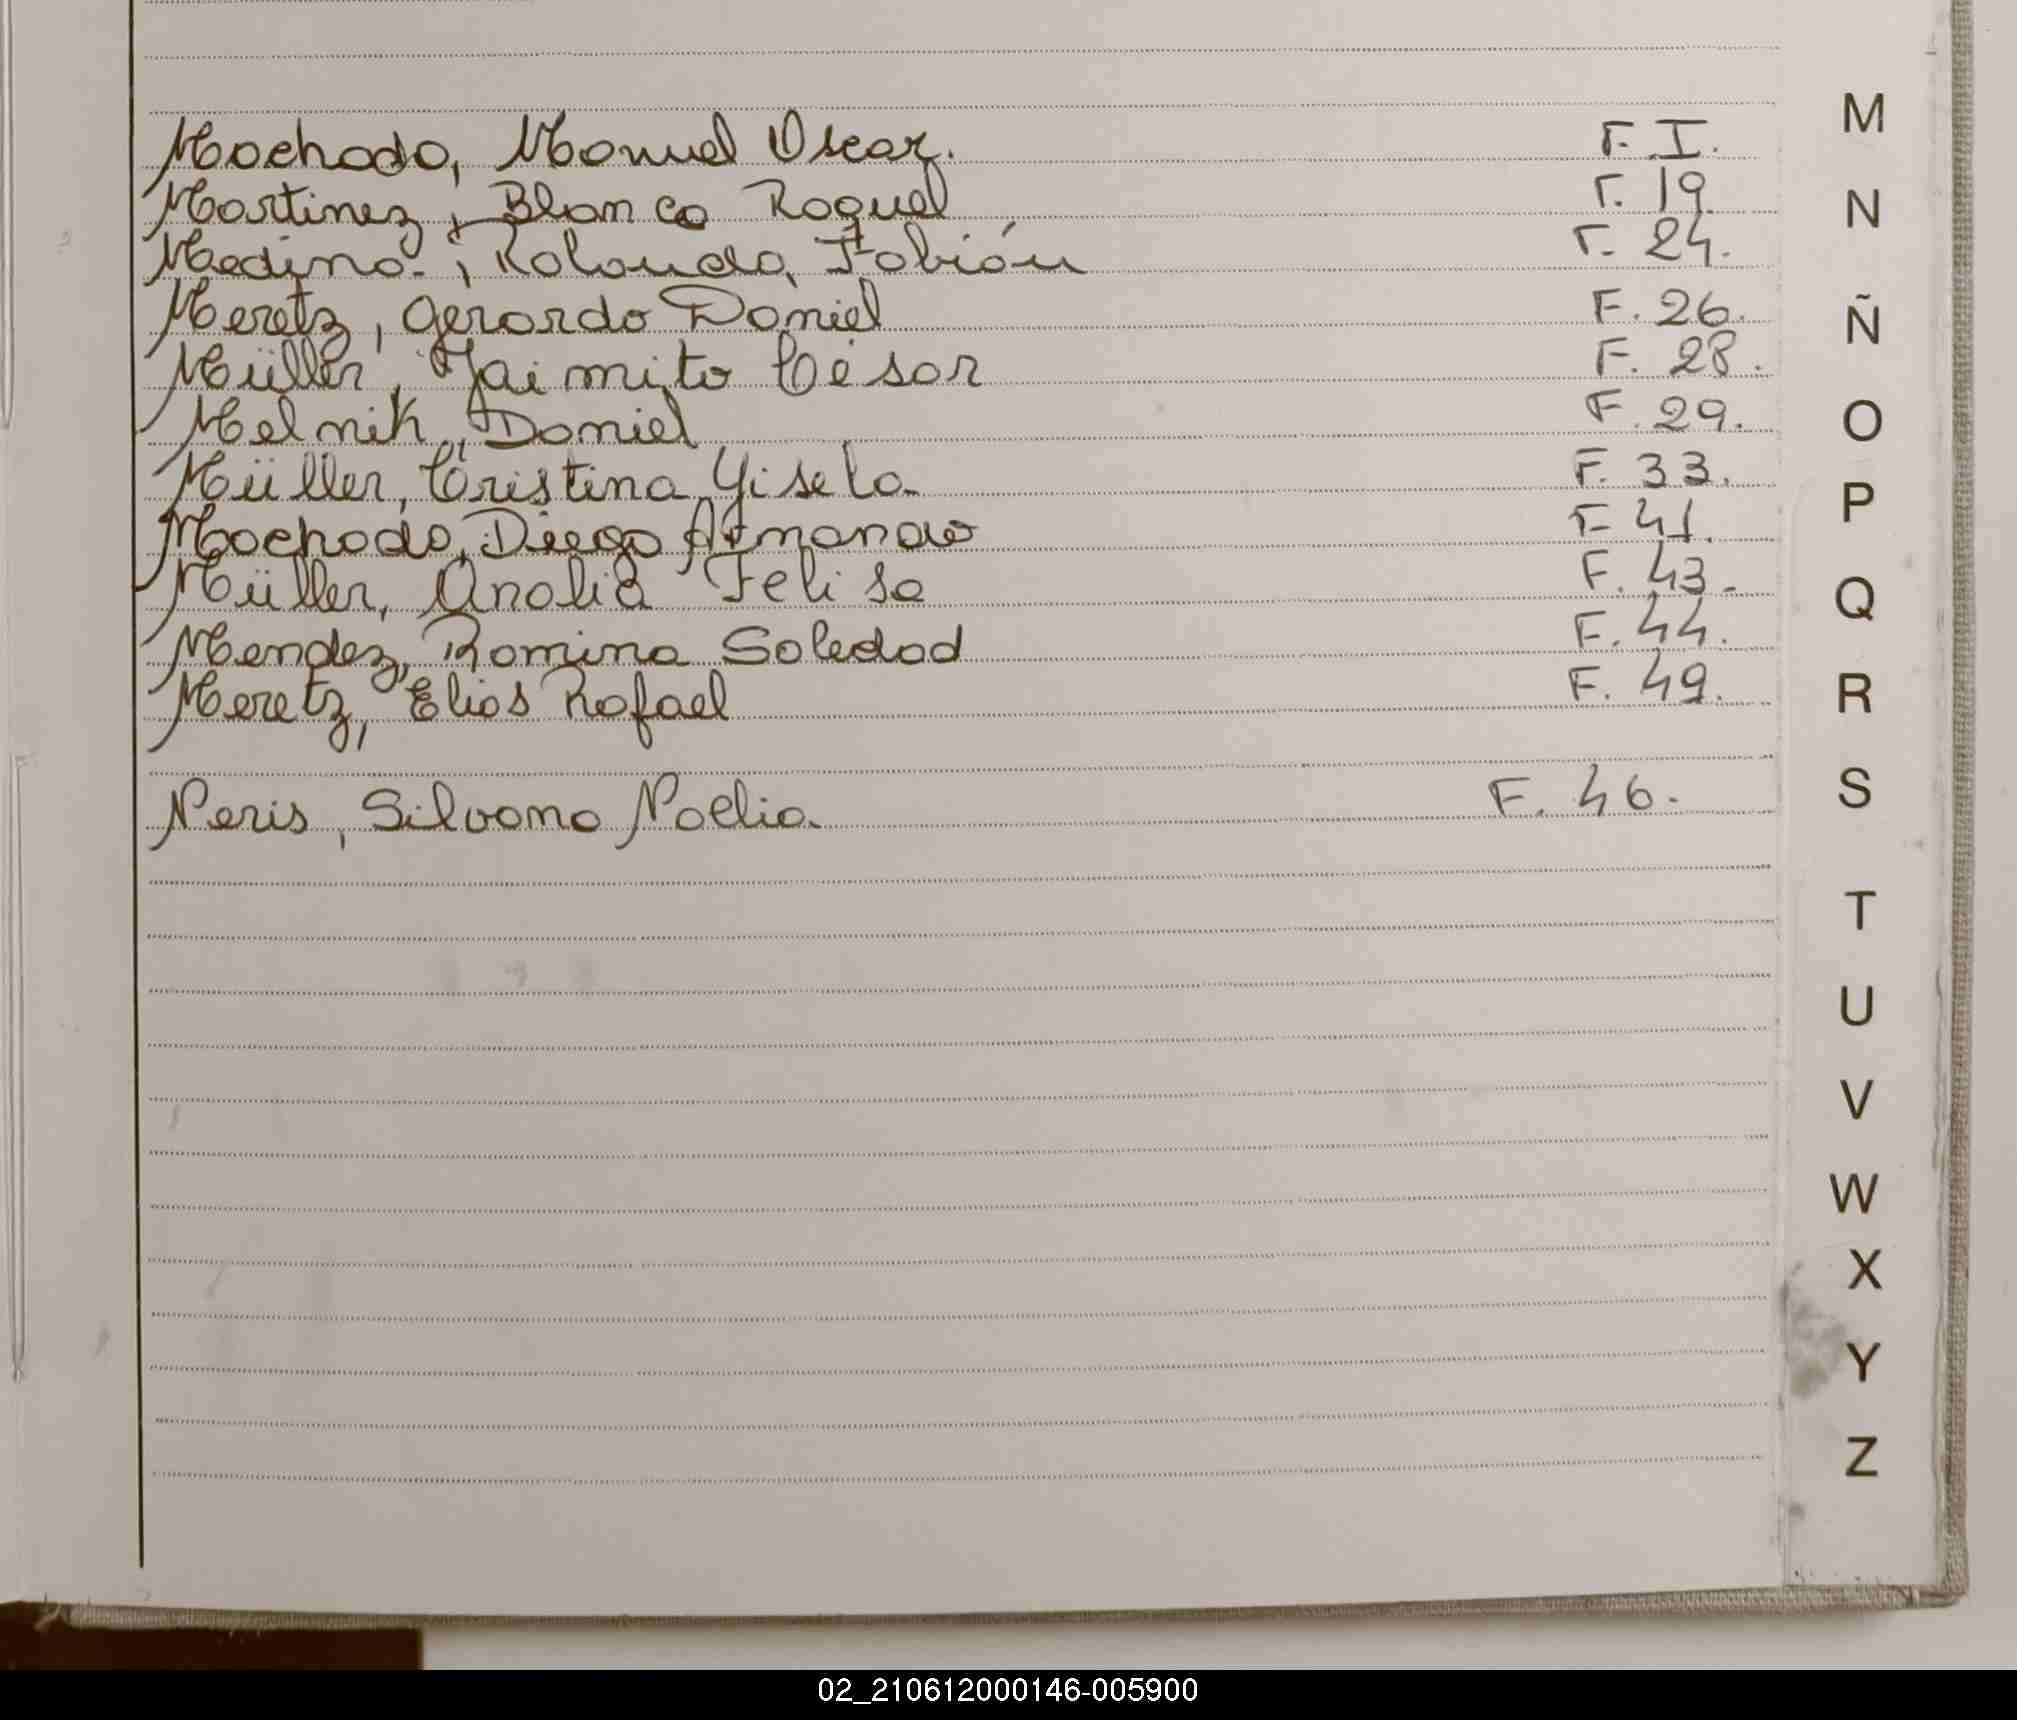 Machado, Manuel Oscar. F. I.
Martinez, Blanca Raquel F. 19
Medina, Rolando Fabián F. 24.
Meretz, Gerardo Daniel F. 26.
Müller, Jaimito César F. 28.
Melnik, Daniel F. 29.
Müller, Cristina Gisela F. 33.
Machado, Diego Armando F. 41.
Müller, Analia Felisa F. 43.
Mendez, Romina Soledad F. 44.
Meretz, Elias Rafael F. 49.
Neris, Silvana Noelia. F. 46.
M
N
Ñ
O
P
Q
R
S
T
U
V
W
X
Y
Z
02_210612000146-005900